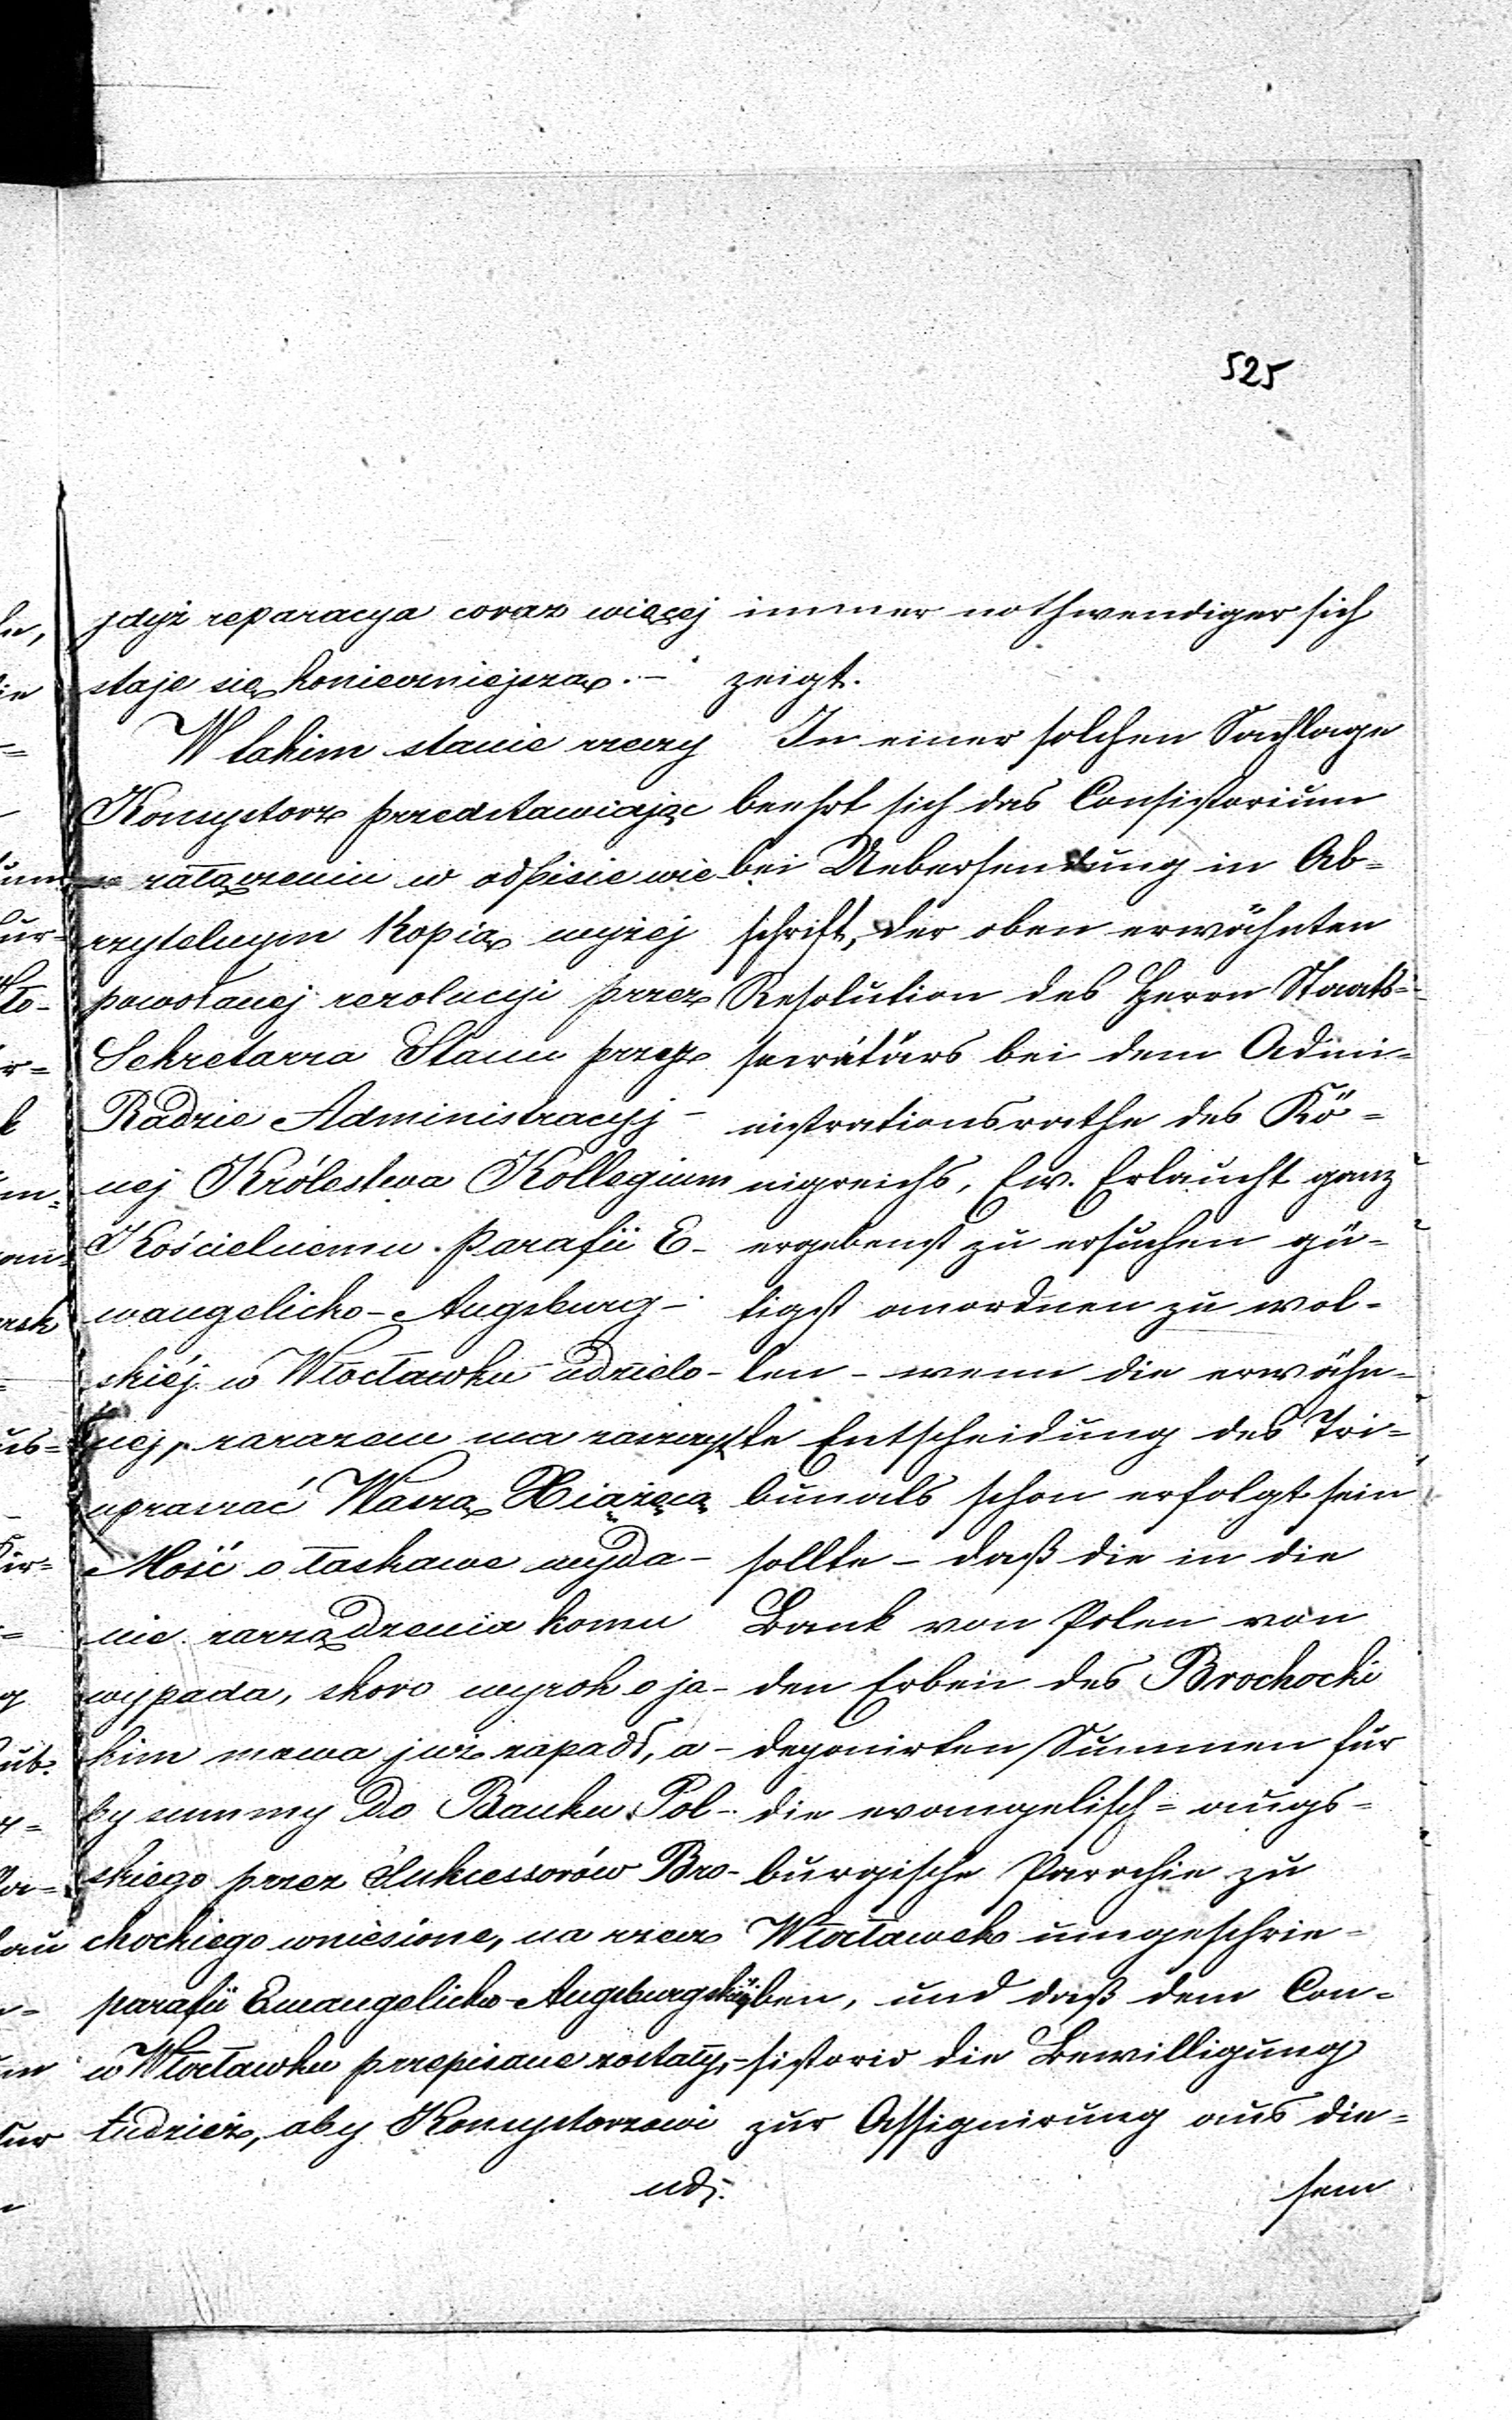 525
gdyż reparacya coraz więcej
staje się konieczniejszą. –
W takim stanie rzeczy
Konsystorz przedstawiając
w załączeniu w odpisie wie-
rzytelnym kopią wyżej
powołanej rezolucyi przez
Sekretarza Stanu przy
Radzie Administracyj-
nej Królestwa Kollegium
Kościelnemu Parafii E-
wangelicko-Augsburg-
skiéj w Włocławku udzielo-
nej, zarazem ma zaszczyt
upraszać Waszą Xiążęcą
Mość o łaskawe wyda-
nie zarządzenia komu
wypada, skoro wyrok o ja-
kim mowa już zapadł, a-
by summy do Banku Pol-
skiego przez Sukcessorów Bro-
chockiego wniesione, na rzecz
parafii Ewangelicko-Augsburgskiej
w Włocławku przepisane zostały, –
tudzież, aby Konsystorzowi
udz.
immer nothwendiger sich
zeigt.
In einer solchen Sachlage
beehrt sich das Consistorium
bei Uebersendung in Ab=
schrift, der oben erwähnten
Resolution des Herrn Staats=
secretärs bei dem Admi=
nistrationsrathe des Kö=
nigreichs, Ew. Erlaucht ganz
ergebenst zu ersuchen gü=
tigst anordnen zu wol=
len – wenn die erwähn=
te Entscheidung des Tri=
bunals schon erfolgt sein
sollte – daß die in die
Bank von Polen von
den Erben des Brochocki
deponirten Summen für
die evangelisch=augs=
burgische Parochie zu
Włocławek umgeschrie=
ben, und daß dem Con=
sistorio die Bewilligung
zur Assignirung aus die=
sem